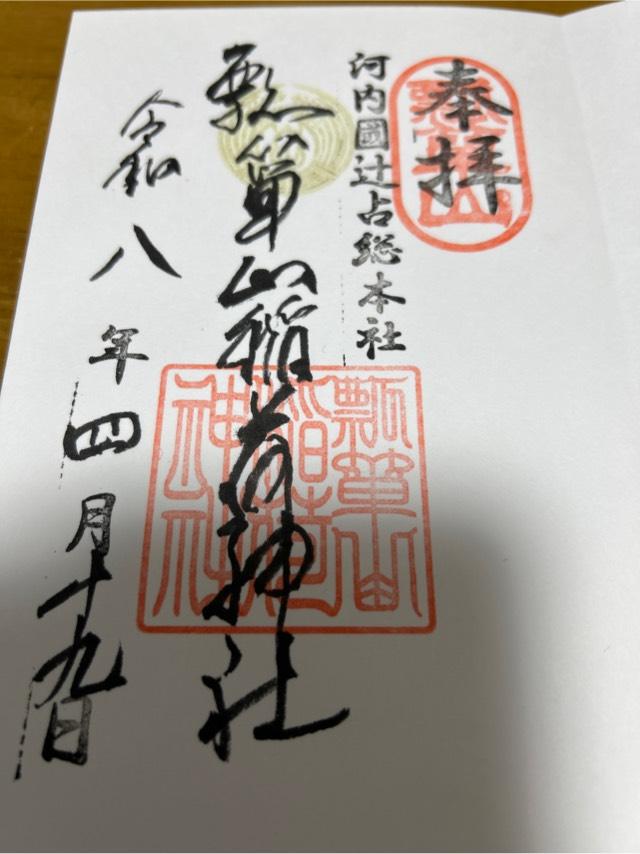 奉拝
河内國辻占総本社
瓢箪山稲荷神社
瓢箪山稲荷神社
令和八年四月十九日